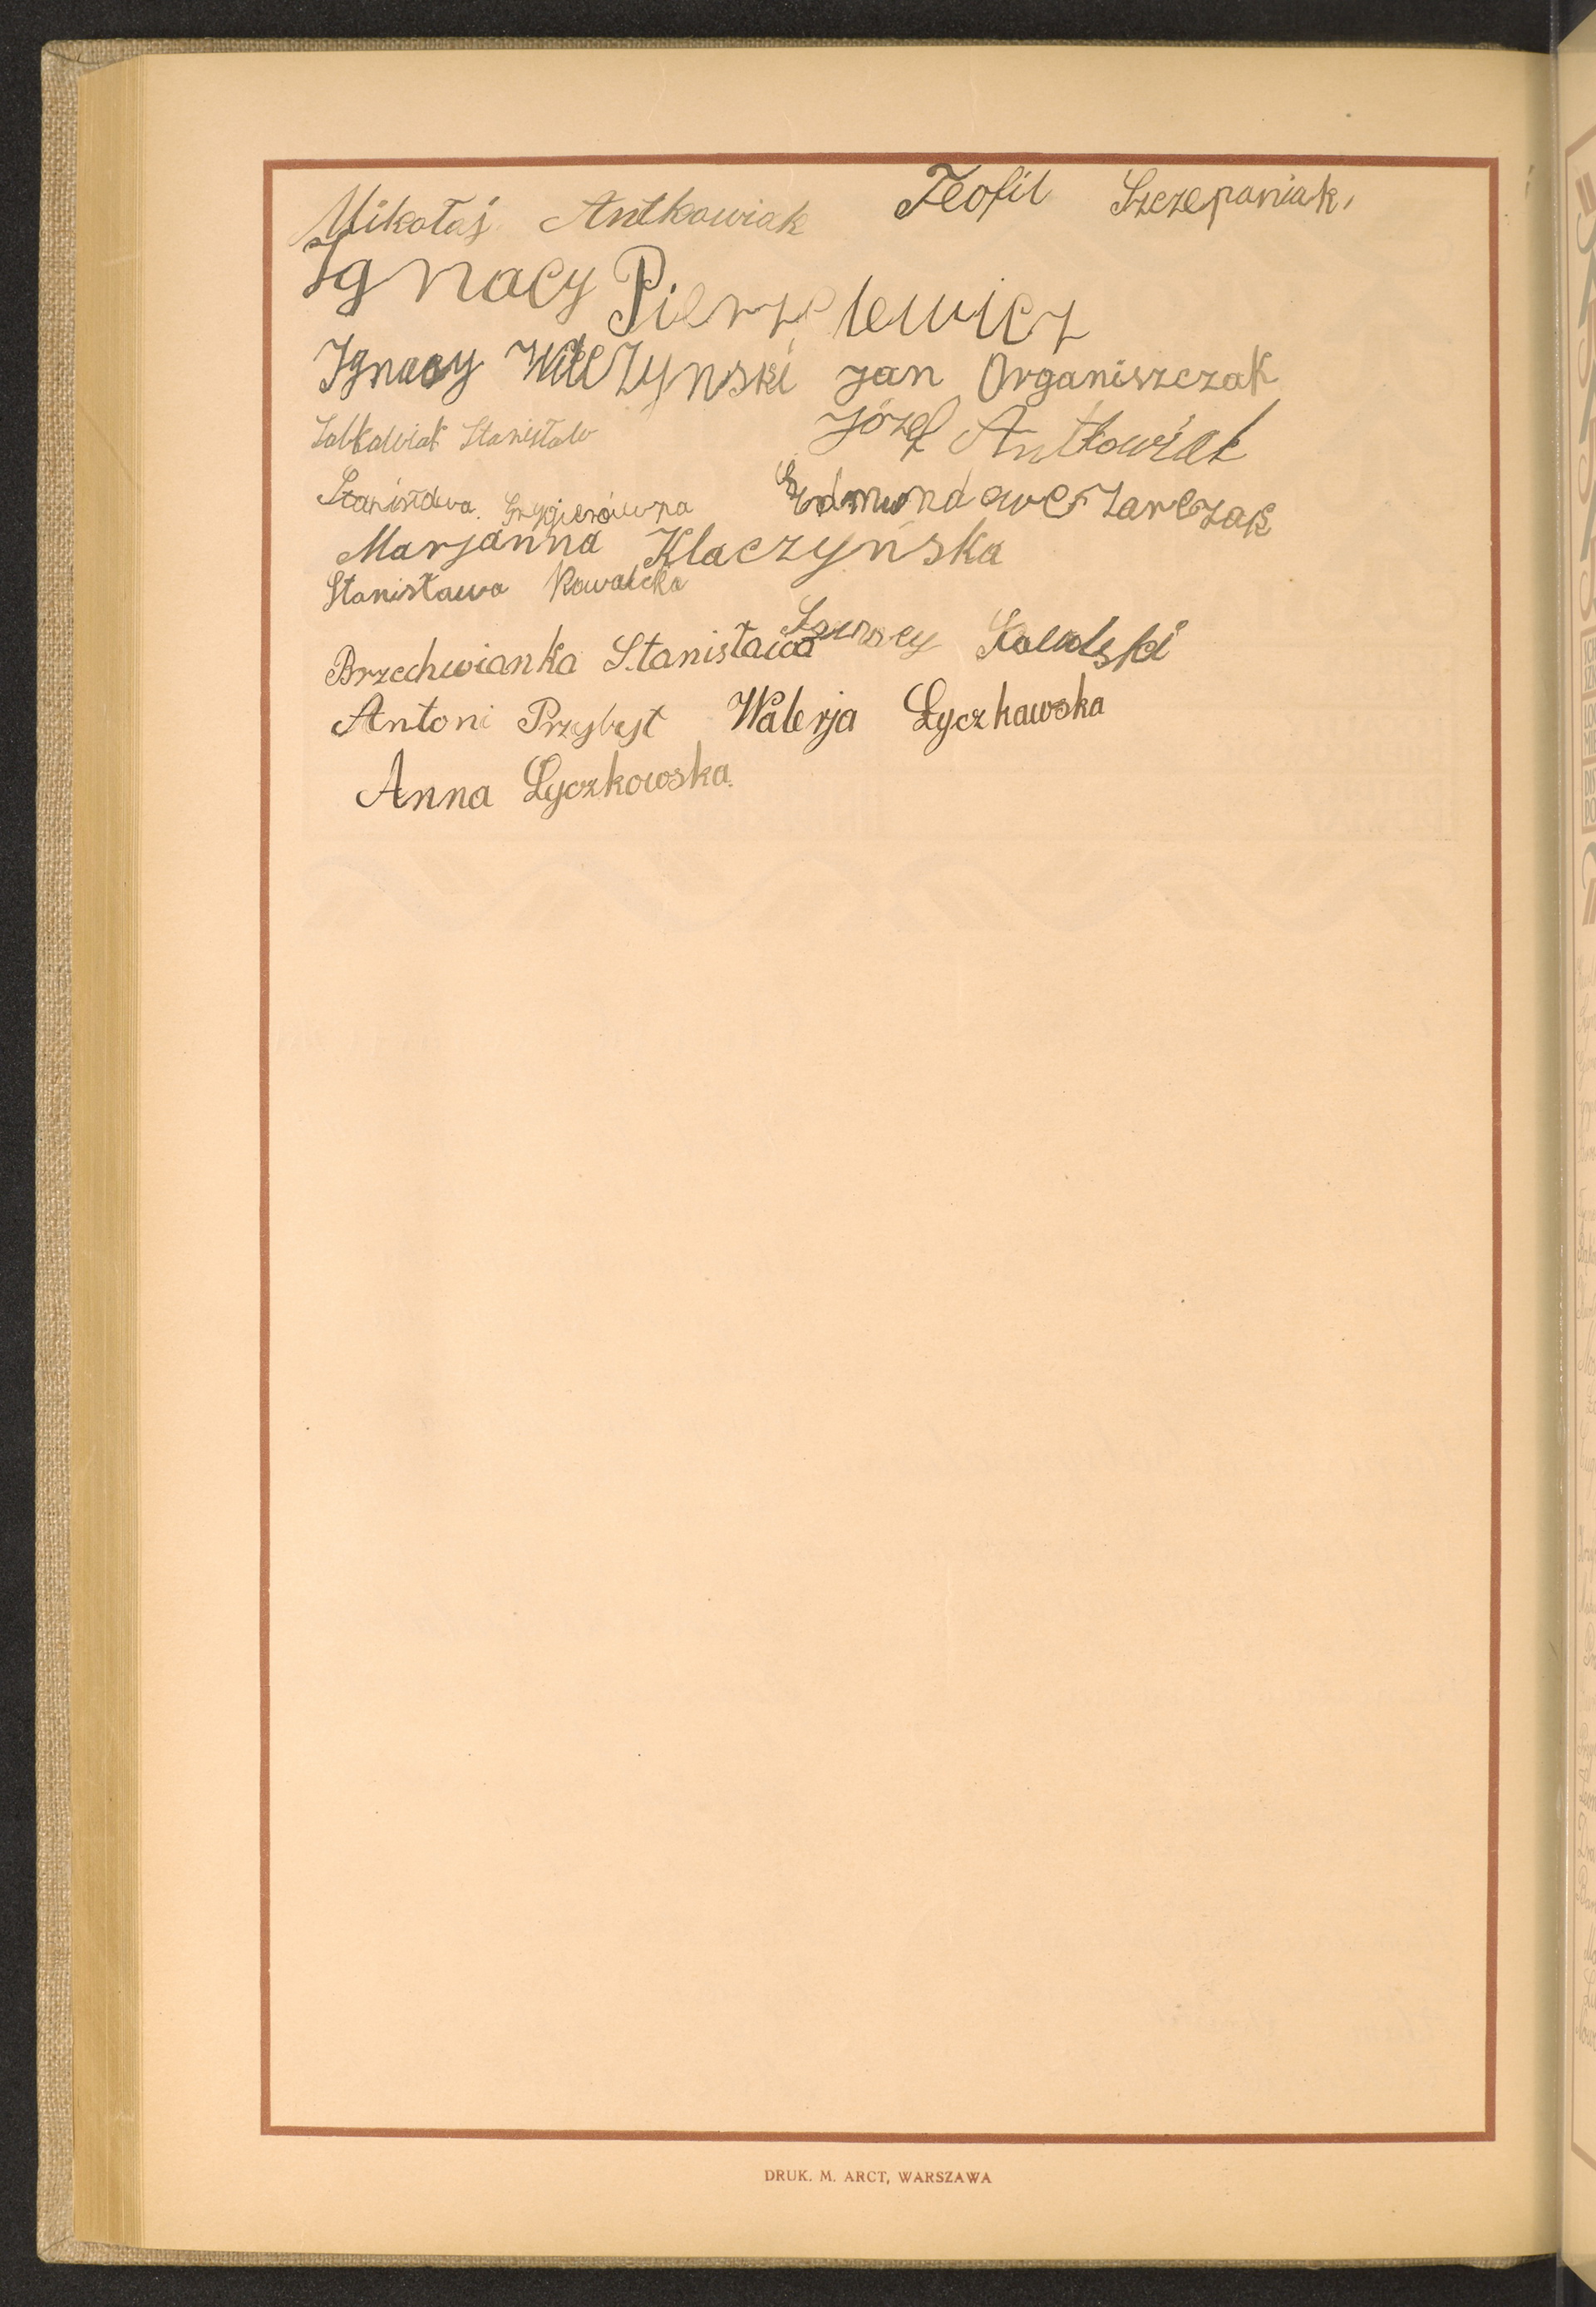 Mikołaj Antkowiak Teofil Szczepaniak,
Ignacy Pierzlewicz
Ignacy Wilczynski Jan Organiszczak
Stanisław Józef Antkowiak
Stanisława Grygierówna Edmund
Marjanna Klaczyńska
Stanisława Kowalska
Brzechwianka Stanisława
Antoni Przybyt Walerja Łyczkawska
Anna Łyczkowska.
DRUK. M. ARCT, WARSZAWA